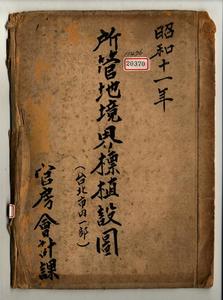 昭和十一年
20370
所管地境界標植設圖
(台北市内一部)
官房會計課